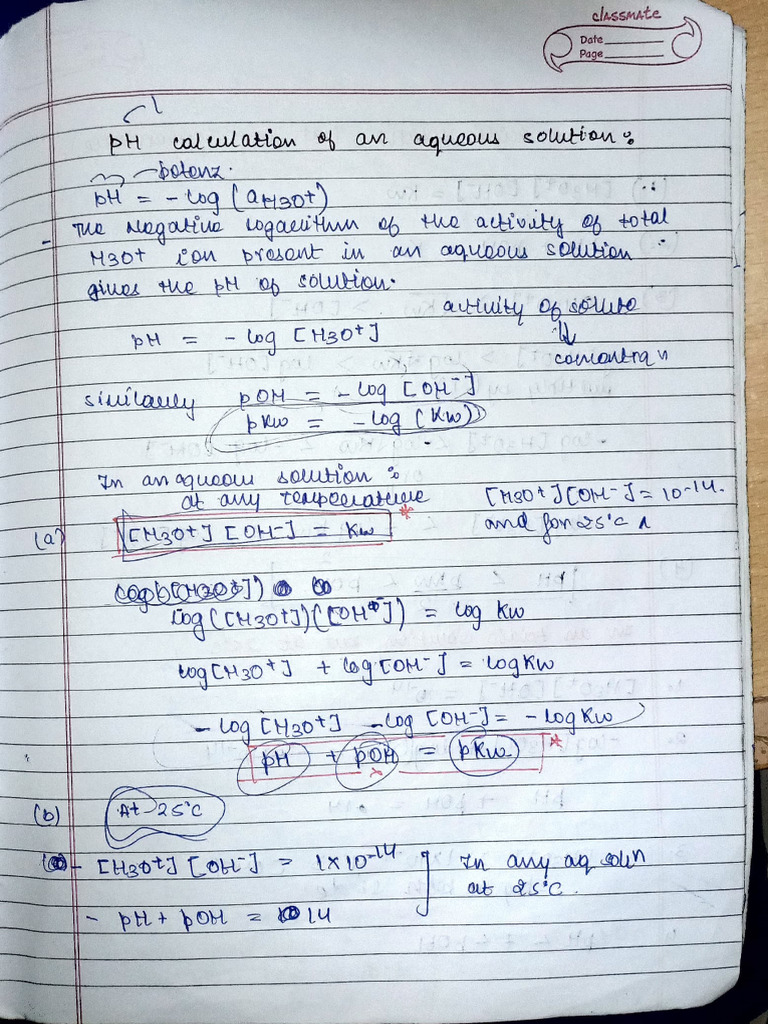 classmate
Date
Page
pH calculation of an aqueous solution:
potenz.
pH = -log (aH3O+)
- The Negative logarithm of the activity of total
H3O+ ion present in an aqueous solution
gives the pH of solution.
activity of solute
pH = -log [H3O+]
similarly pOH = -log [OH-]
pKw = -log (Kw)
In an aqueous solution:
at any temperature
[H3O+][OH-] = 10-14.
and for 25°C
(a) [H3O+] [OH-] = Kw *
log([H3O+])([OH-]) = log Kw
log[H3O+] + log[OH-] = logKw
-log[H3O+] -log[OH-] = -logKw
pH + pOH = pKw. *
(b) At 25°C
- [H3O+] [OH-] = 1×10-14 ] In any aq soln
at 25°C.
- pH + pOH = 14